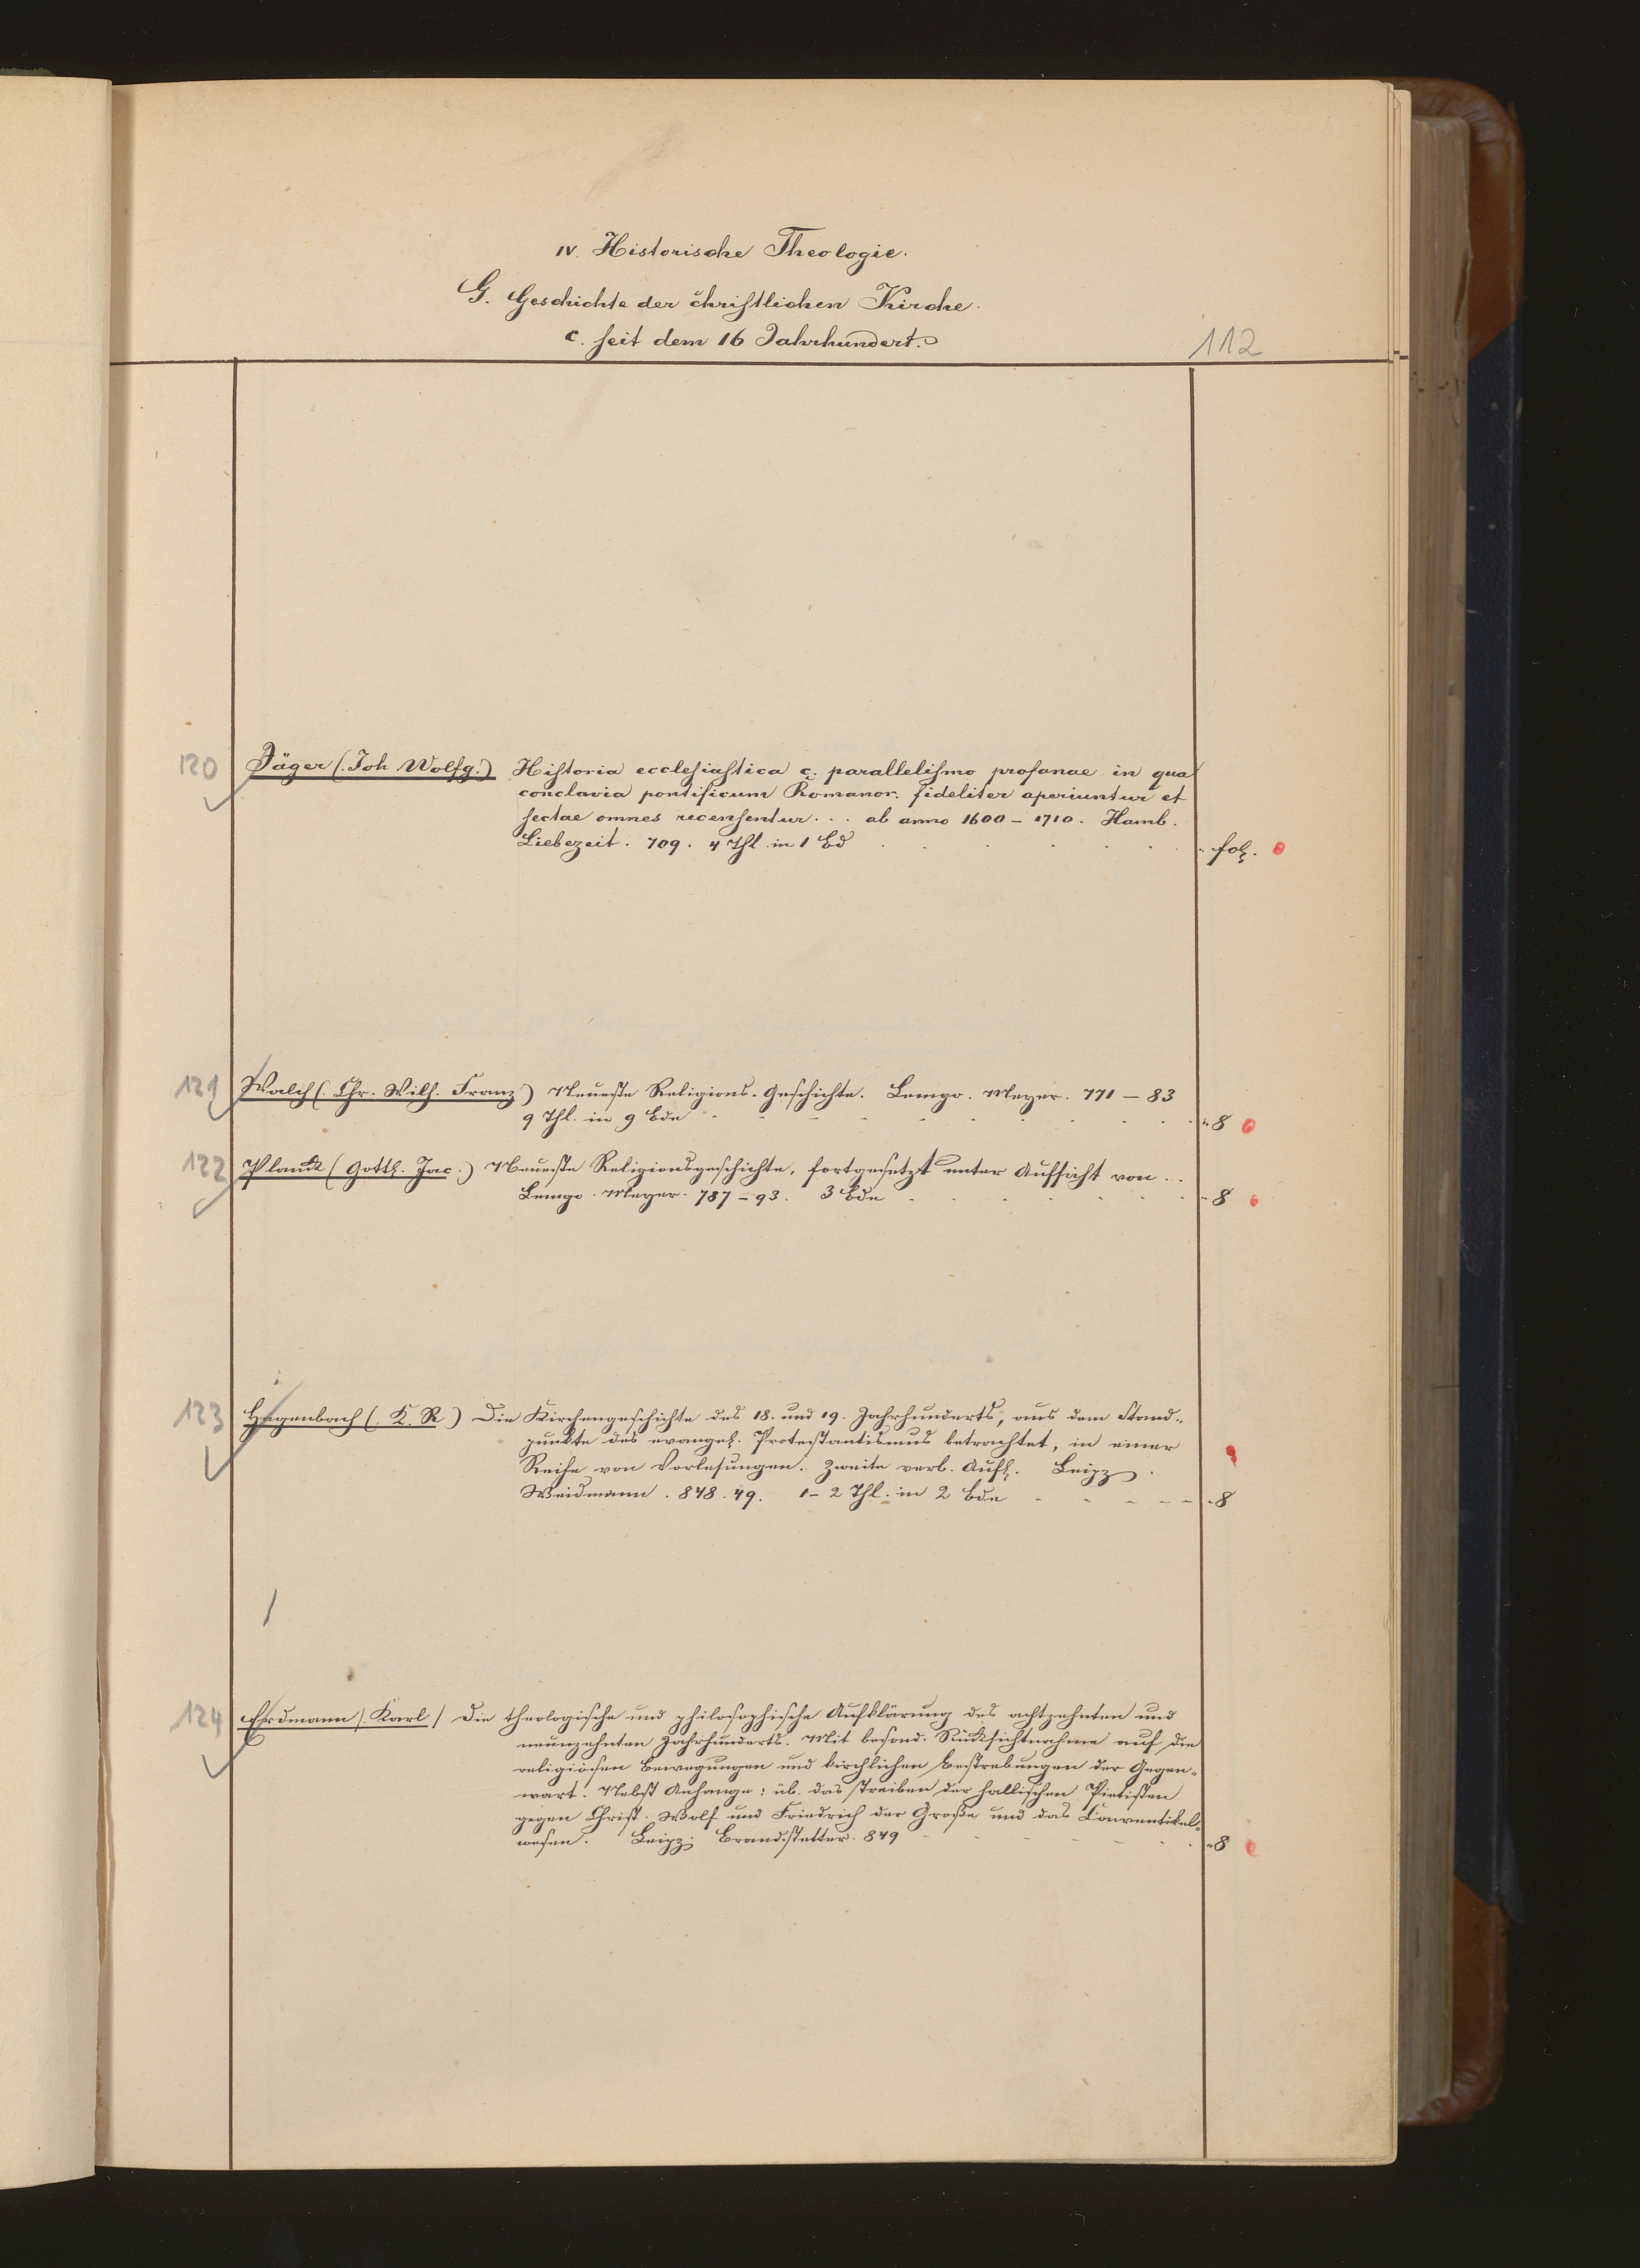 IV. Historische Theologie.
G. Geschichte der christlichen Kirche.
c. seit dem 16 Jahrhundert.
112
120 Jäger (Joh Wolfg.) Historia ecclesiastica c. parallelismo profanae in qua
conclavia pontificum Romanor. fideliter aperiuntur et
sectae omnes recensentur . . . ab anno 1600 – 1710. Hamb.
Liebezeit. 709. 4 Thl. in 1 Bd . . . . . fol.
121 Walch (Chr. Wilh. Franz) Neueste Religions-Geschichte. Lemgo. Meyer. 771 – 83
9 Thl. in 9 Bde - - - - - 8
122 Planck (Gottl. Jac.) Neueste Religionsgeschichte, fortgesetzt unter Aufsicht von . .
Lemgo. Meyer. 787 – 93. 3 Bde - - - - - 8
123 Hagenbach (K. R.) Die Kirchengeschichte des 18. und 19. Jahrhunderts, aus dem Stand-
punkte des evangel. Protestantismus betrachtet, in einer
Reihe von Vorlesungen. Zweite verb. Aufl. Leipz.
Weidmann. 848. 49. 1 – 2 Thl. in 2 Bde - - - - - 8
124 Erdmann (Karl) Die theologische und philosophische Aufklärung des achtzehnten und
neunzehnten Jahrhunderts. Mit besond. Rücksichtnahme auf die
religiösen Bewegungen und kirchlichen Bestrebungen der Gegen-
wart. Nebst Anhange: üb. das Treiben der hallischen Pietisten
gegen Christ. Wolf und Friedrich der Große und das Conventikel-
wesen. Leipz. Brandstetter. 849 - - - - - 8